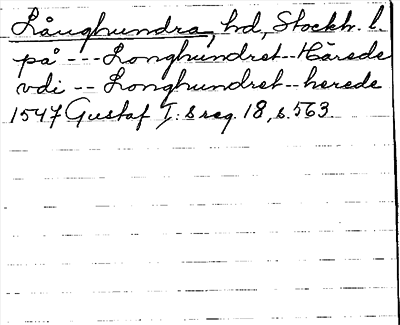 Långhundra, hd, Stockh. l.
på --- Longhundret -- Härede
vdi -- Longhundret -- herede
1547 Gustaf I:s reg. 18, s. 563.